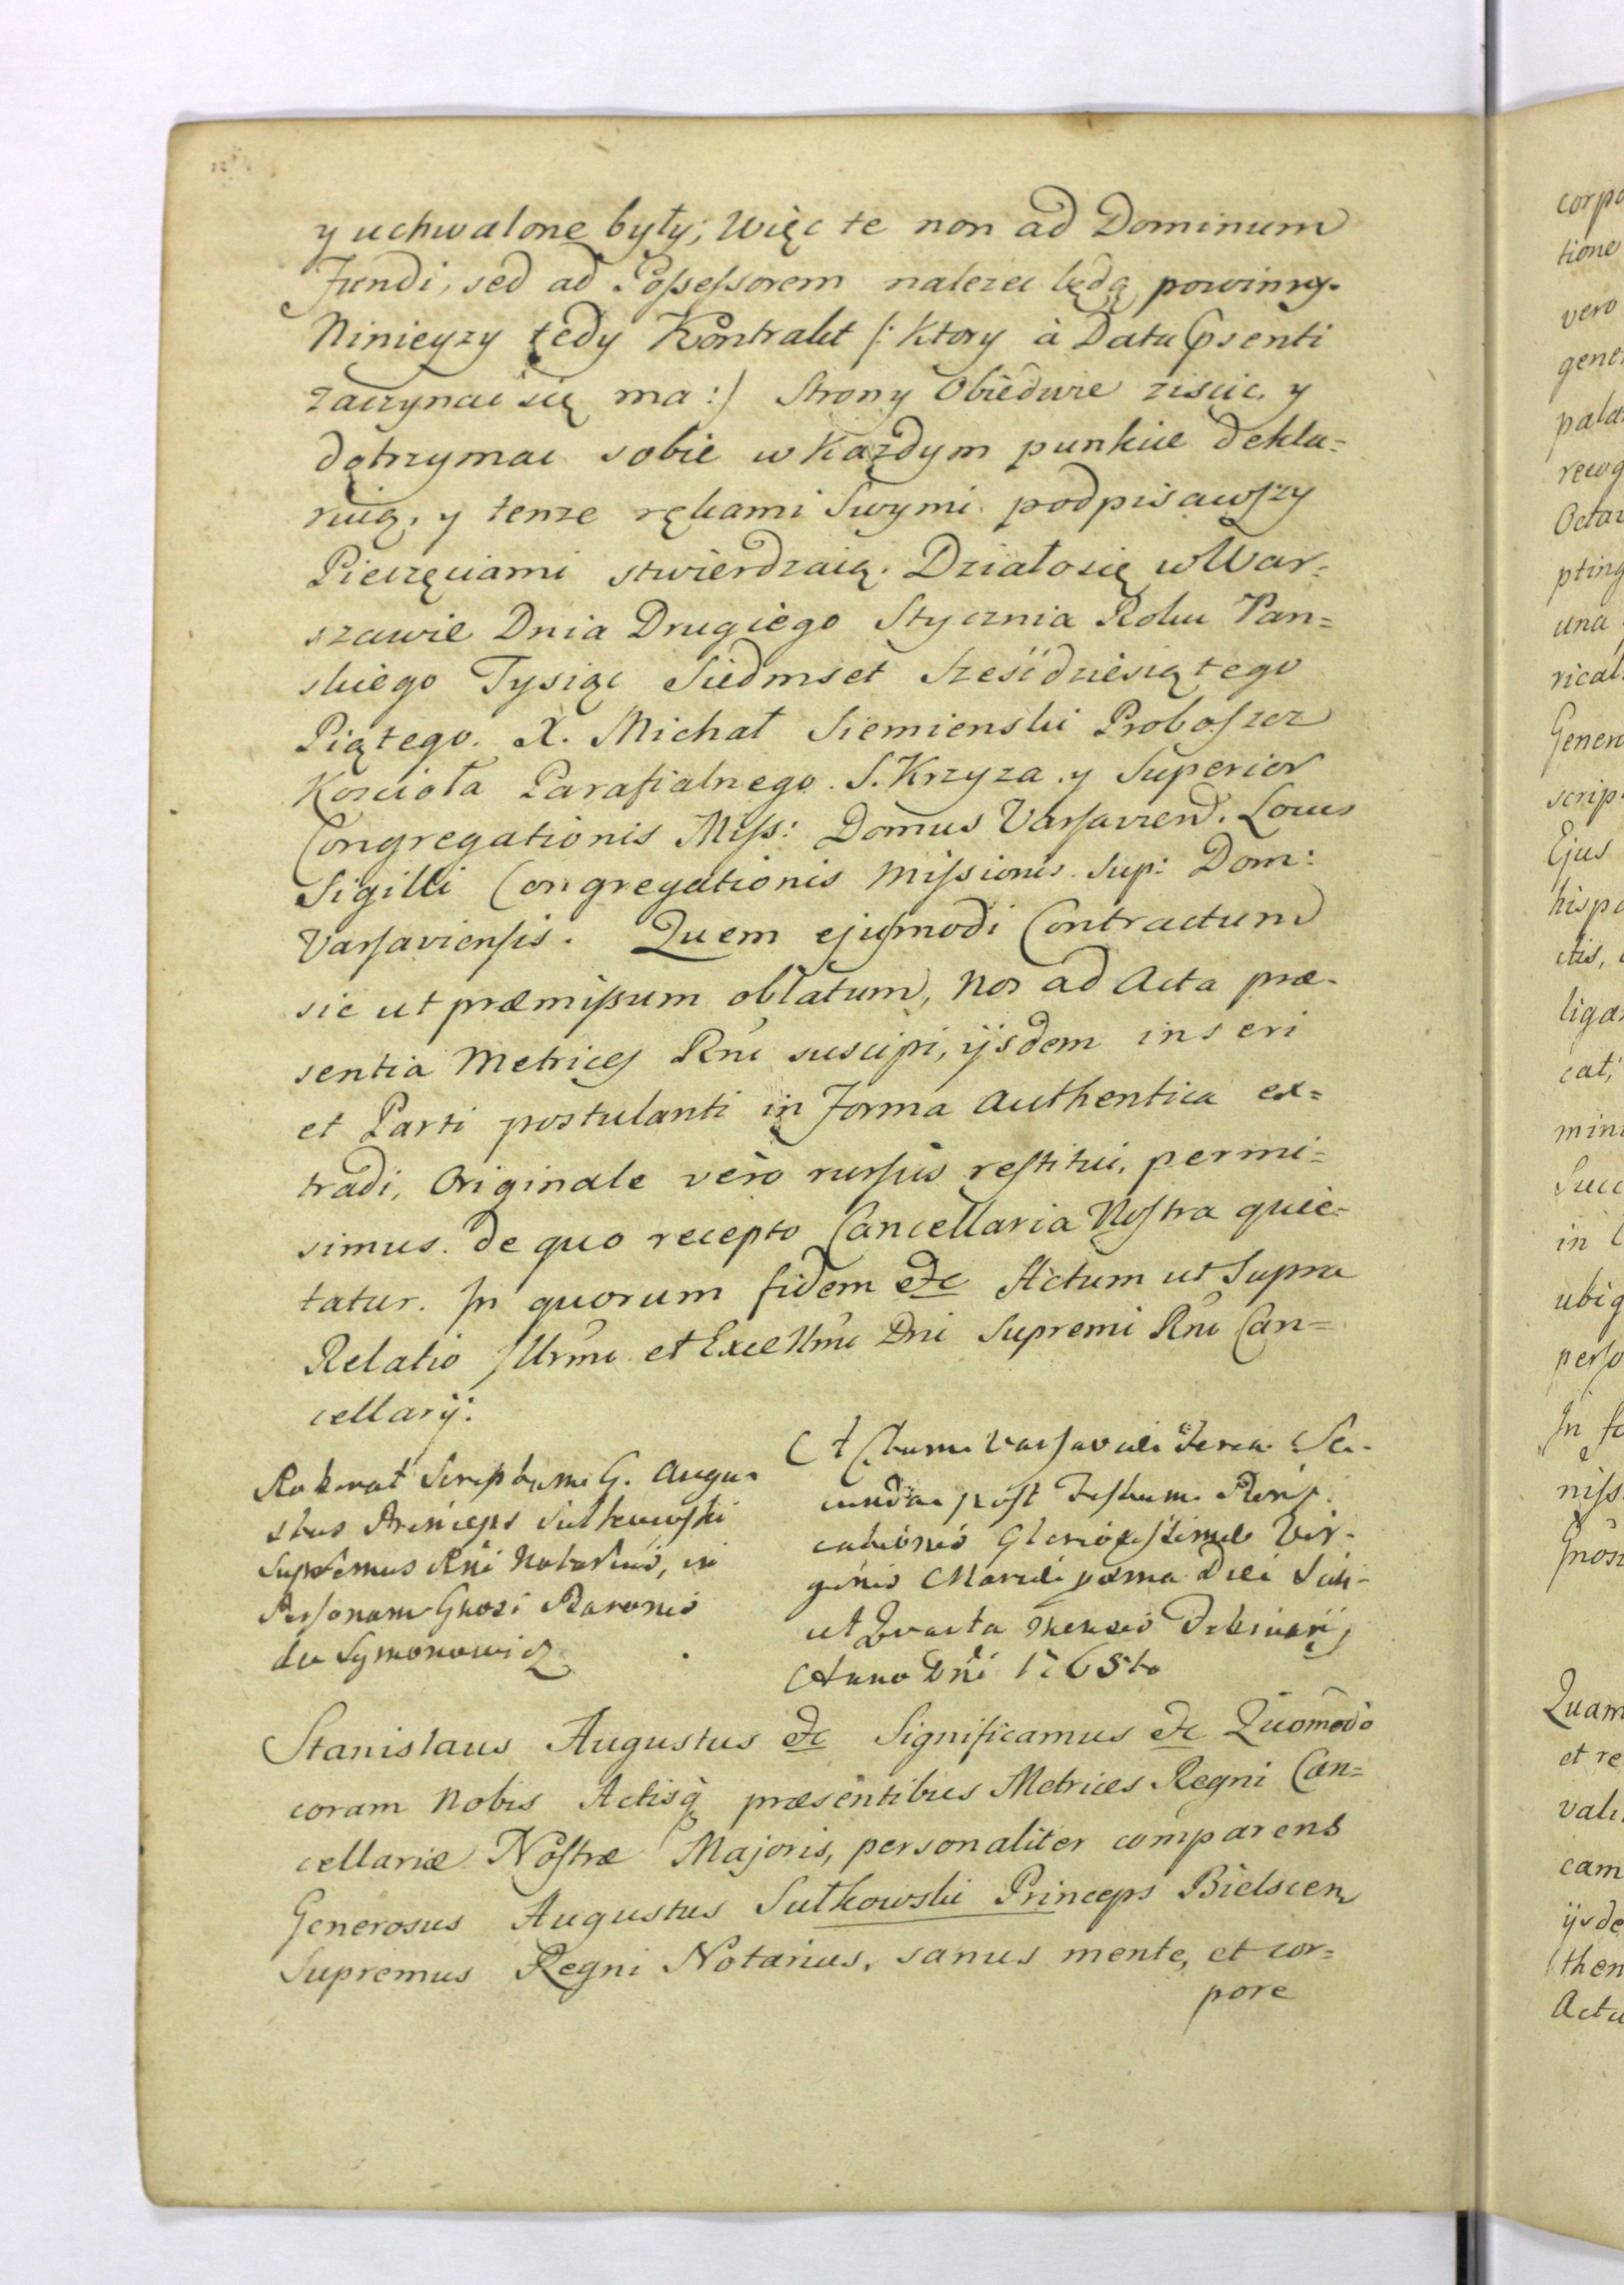 y uchwalone były; Więc te non ad Dominum
Fundi, sed ad Possessorem nalezec będą powinny.
Ninieyzy tedy Kontrakt /: Ktory à Data psenti
zaczynac się ma :/ Strony Obiedwie ziscic y
dotrzymac sobie w Kazdym punkcie dekla=
ruią, y tenze rękami Swymi podpisawszy
Pieczęciami stwierdzaią. Działo się w War=
szawie Dnia Drugiego Stycznia Roku Pan=
skiego Tysiąc Siedmset Sześcdziesiątego
Piątego. X. Michał Siemienski Proboszcz
Koscioła Parafialnego S. Krzyza y Superior
Congregationis Miss: Domus Varsavien. Locus
Sigilli Congregationis Missionis Sup: Dom:
Varsaviensis. Quem ejusmodi Contractum
sic ut præmissum oblatum, Nos ad Acta præ-
sentia Metrices Rni suscipi, ijsdem inseri
et Parti postulanti in Forma Authentica ex=
tradi, Originale vero rursus restitui, permi=
simus. De quo recepto Cancellaria Nostra quie=
tatur. In quorum fidem &c Actum ut Supra
Relatio Illrmi et Excellmi Dni Supremi Rni Can=
cellarij.
Roborat Scriptum G. Augu-
stus Princeps Sułkowski
Supremus Rni Notarius, in
Personam Gnosi Baronis
de Symonowicz
Actum Varsaviæ Feria Se-
cunda post Festum Purifi-
cationis Gloriosissimæ Vir-
ginis Mariæ prma Die Scili-
et Quarta Mensis Februarij
Anno Dni 1765to
Stanislaus Augustus &c Significamus &c Quomodo
coram Nobis Actisq præsentibus Metrices Regni Can=
cellariæ Nostræ Majoris, personaliter comparens
Generosus Augustus Sułkowski Princeps Bielscen
Supremus Regni Notarius, sanus mente, et cor=
pore
corpo
tione
vero
gene
pala
recog
Octa
pting
una
rical
Gener
scrip
Ejus
hisp
ctis,
liga
cat,
min
Succ
in
ubiq
perso
In f
niss
Gnos
Quam
et re
vali
cam
ijsde
then
Actu